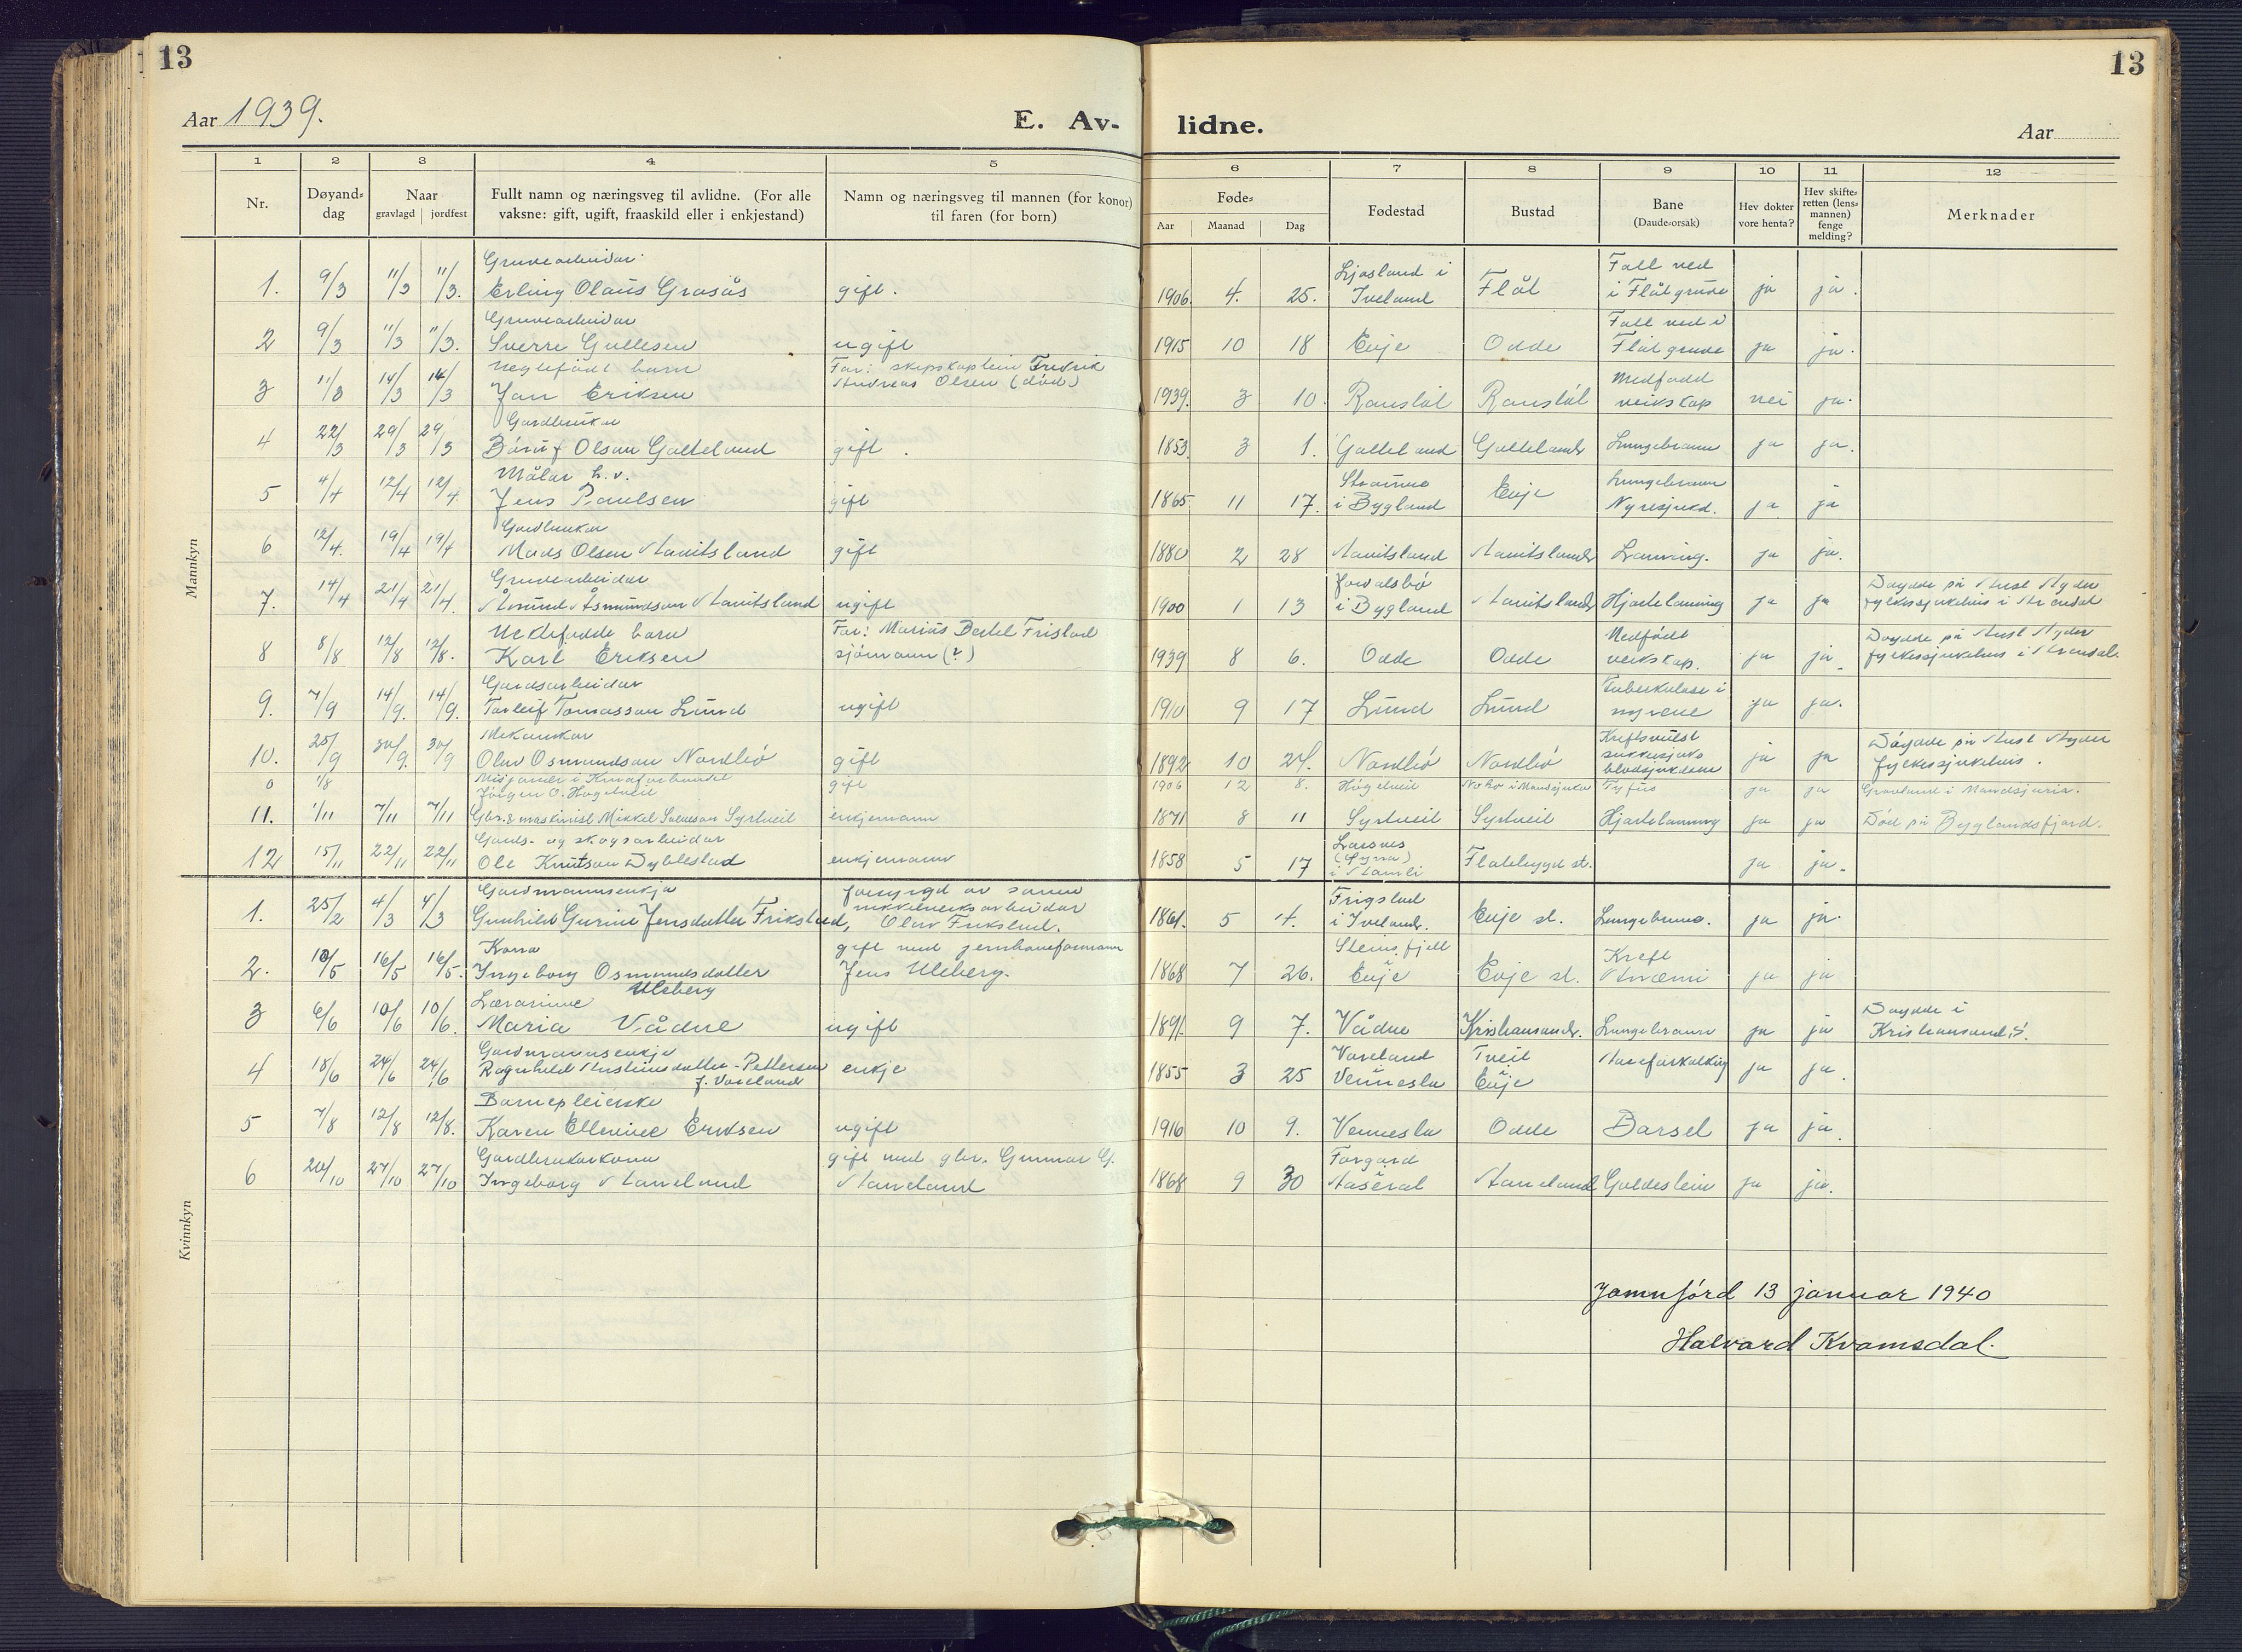 13
13
Aar 1939.
E. Av-
lidne.
Aar
1 2 3 4 5 6 7 8 9 10 11 12
Nr.
Døyand-
dag
Naar
gravlagd jordfest
Fullt namn og næringsveg til avlidne. (For alle
vaksne: gift, ugift, fraaskild eller i enkjestand)
Namn og næringsveg til mannen (for konor)
til faren (for born)
Føde-
Aar Maanad Dag
Fødestad
Bustad
Bane
(Daude-orsak)
Hev dokter
vore henta?
Hev skifte-
retten (lens-
mannen)
fenge
melding?
Merknader
Mannkyn
Gruvearbeidar Ljosland i Fall ved
1. 9/3 11/3 11/3. Erling Olaus Grosås gift. 1906 4. 25. Iveland Flåt i Flåt gruve ja ja.
Gruvearbeidar Fall ved i
2 9/3 11/3 11/3. Sverre Gullesen ugift 1915 10 18 Evje Odde Flåt gruve ja ja.
barn Far: skipskaptein Fredrik Medfødd
3 11/3 14/3 14/3 Jan Eriksen Andreas Olsen (død) 1939. 3 10. veikskap nei ja.
Gardbrukar
4 22/3 29/3 29/3 Olson Galteland gift. 1853 3 1. Galteland Galteland Lungebrann ja ja.
Målar h. v. Lungebrann
5 4/4 12/4 12/4. Jens Paulsen gift 1865 11 17. i Bygland Evje Nyresjukd. ja ja
Gardbrukar
6 12/4. 19/4 19/4 Mads Olsen Aavitsland gift 1880 2 28 Aavitsland Aavitsland Lamning. ja ja.
Gruvearbeidar Døydde på Aust Agder
7. 14/4 21/4 21/4. Åmund Åsmundson Aavitsland ugift 1900 1 13 i Bygland Aavitsland Hjartelamning ja ja fylkessjukehus i Arendal
Uektefødde barn Far: Marius Bertel Fristad Medfødt Døydde på Aust Agder
8 8/8 12/8 12/8. Karl Eriksen sjømann (?) 1939 8 6. Odde Odde veikskap. ja ja fylkessjukehus i Arendal.
Gardsarbeidar Tuberkulose i
9. 7/9 14/9. 14/9. Torleif Tomasson Lund ugift 1910 9 17 Lund Lund nyrene ja ja.
Mekanikar Kreftsvulst Døydde på Aust Agder
10. 25/9 30/9. 30/9 Olav Osmundson Nordbø gift 1892 10 24. Nordbø Nordbø sukkersjuke ja ja fylkessjukehus.
blodsjukdom
0 1/8 Misjonær i Kinaforbundet
Jørgen O. Høgetveit gift 1906 12 8. Høgetveit Noho i Mandsjuria Tyfus ja ja Gravland i Mandsjuria.
11. 1/11 7/11 7/11 Gbr. & maskinist Mikkel Syrtveit enkjemann 1871 8 11 Syrtveit Syrtveit Hjartelamning ja ja Død på Byglandsfjord.
Gards- og skogsarbeidar
12 15/11 22/11 22/11 Ole Knutson Dyblestad enkjemann 1858 5 17 i Aamli Flatebygd st. ja ja.
Kvinnkyn
Gardmannsenkja forsyrgd av sonen Frigstad
1. 25/2 4/3 4/3 Gunhild Gurine Jensdatter Frikstad, nikkelverksarbeidar 1861. 5 4. i Iveland. Evje st. Lungebrann. ja ja.
Olav Frikstad.
Kona gift med jernbaneformann Steinsfjell Kreft
2. 10/5 16/5 16/5. Ingeborg Osmundsdatter Jens Uleberg. 1868 7 26. i Evje Evje st. Anæmi ja ja
Uleberg
Lærarinne Døydde i
3 6/6 10/6 10/6. Maria Vådne ugift 1891. 9 7. Vådne Kristiansand. Lungebrann ja ja Kristiansand. S.
Gardmannsenkje Voreland Tveit
4 18/6 24/6 24/6 Ragnhild Austinsdatter-Pettersen enkje 1855 3 25 i Vennesla i Evje Aareforkalking ja ja.
f. Voreland
Barnepleierske
5 7/8 12/8 12/8. Karen Ellenine Eriksen ugift 1916 10 9. Vennesla Odde Barsel ja ja.
Gardbrukarkona gift med gbr. Gunnar G. Forgard
6 20/10 27/10 27/10 Ingeborg Aaneland Aaneland 1868 9 30 i Aaseral Aaneland Galdestein ja ja.
Jamnførd 13 januar 1940
Halvard Kvamsdal.